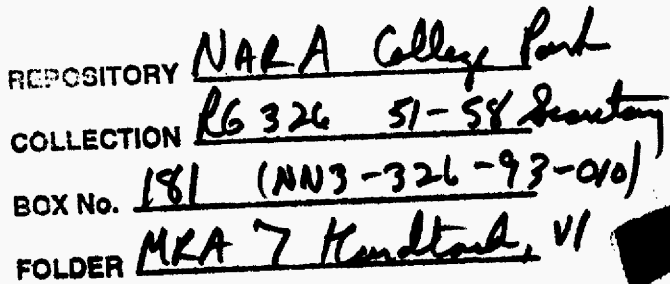 REPOSITORY NARA College Park
COLLECTION RG 326 51-58 Secretary
BOX No. 181 (NN3-326-93-010)
FOLDER MRA 7 Hardtack, V1